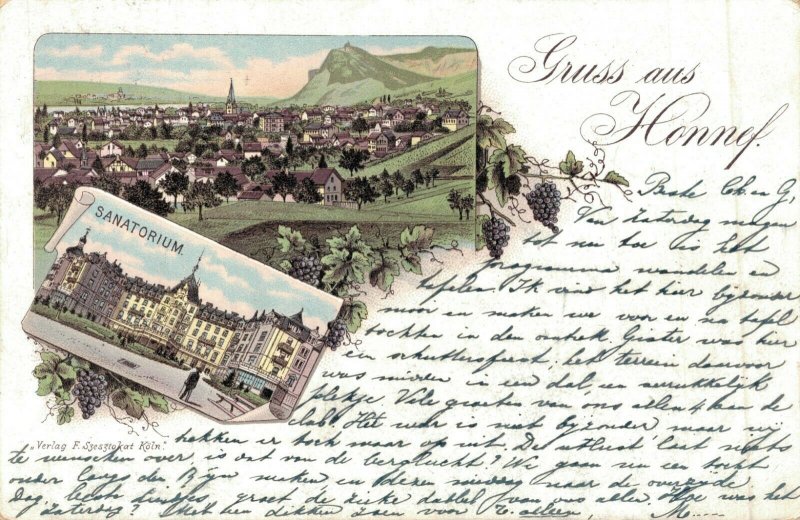 Gruss aus
Honnef.
SANATORIUM.
Beste Ch. en G,
Van Zaterdag morgen
tot nu toe is het
programma wandelen en
tafelen. Ik vind het hier bijzonder
mooi en maken we voor en na tafel
tochten in den omtrek. Gister was hier
een schuttersfeest; het terrein daarvoor
was midden in een dal een verrukkelijk
plekje. Vele groeten van ons allen aan de
club! Het was is niet bijzonder maar wij
trekken er toch maar op uit. De eetlust laat niets
te wenschen over, is dat van de berglucht? We gaan nu een tocht
onder langs den Rijn maken en dezen middag naar de overzijde
Dag, beste kindjes, groet de zieke dubbel van ons allen. Hoe was het
Zaterdag? Met een dikken zoen voor allen M
„Verlag F. Szesztokat Köln“.